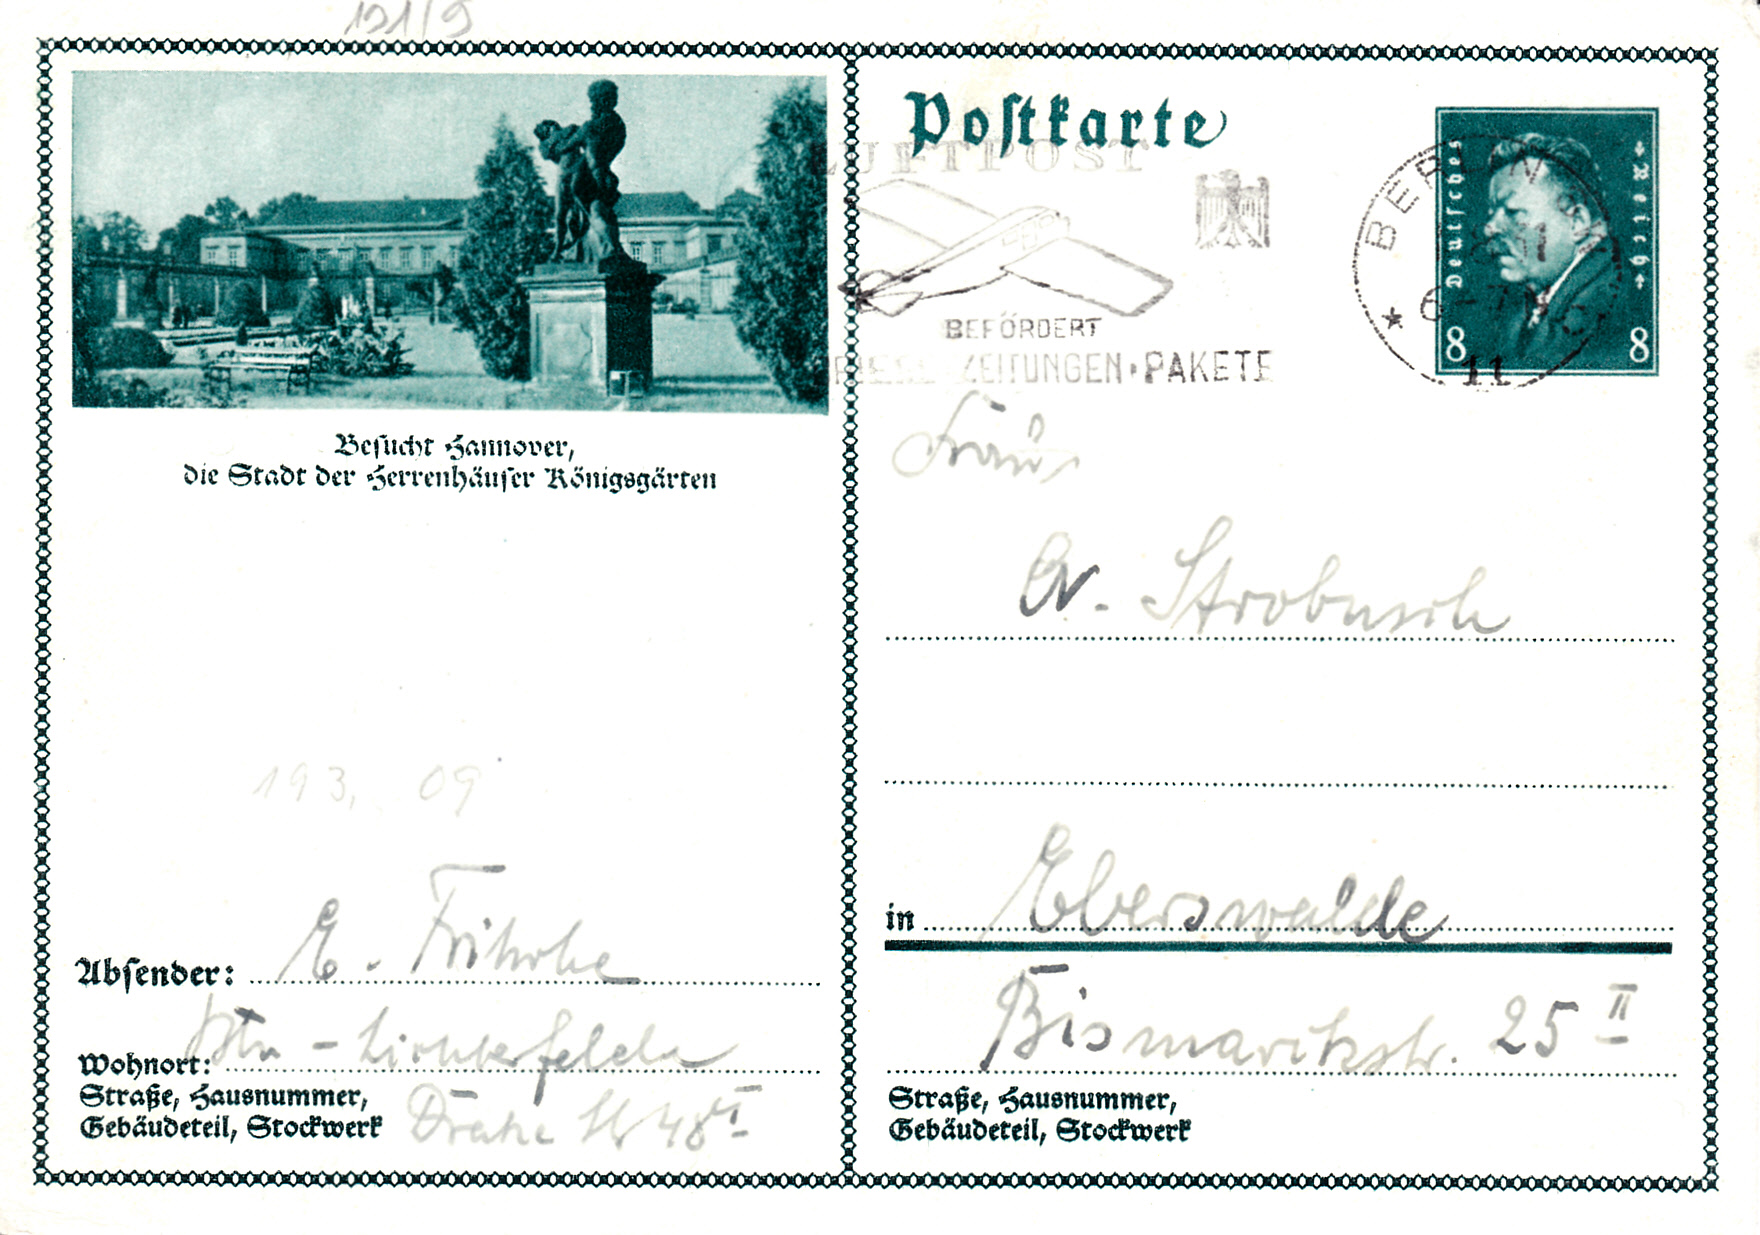 191/9
Besucht Hannover,
die Stadt der Herrenhäuser Königsgärten
193, 09
Absender: E.
Wohnort: Bln-Lichterfelde
Straße, Hausnummer,
Gebäudeteil, Stockwerk Drake Str 48 II
Postkarte
LUFTPOST
BEFÖRDERT
BRIEFE ZEITUNGEN·PAKETE
BERLIN
11
Deutsches Reich
8 8
Frau
A. Strobusch
in Eberswalde
Bismarckstr. 25 II
Straße, Hausnummer,
Gebäudeteil, Stockwerk